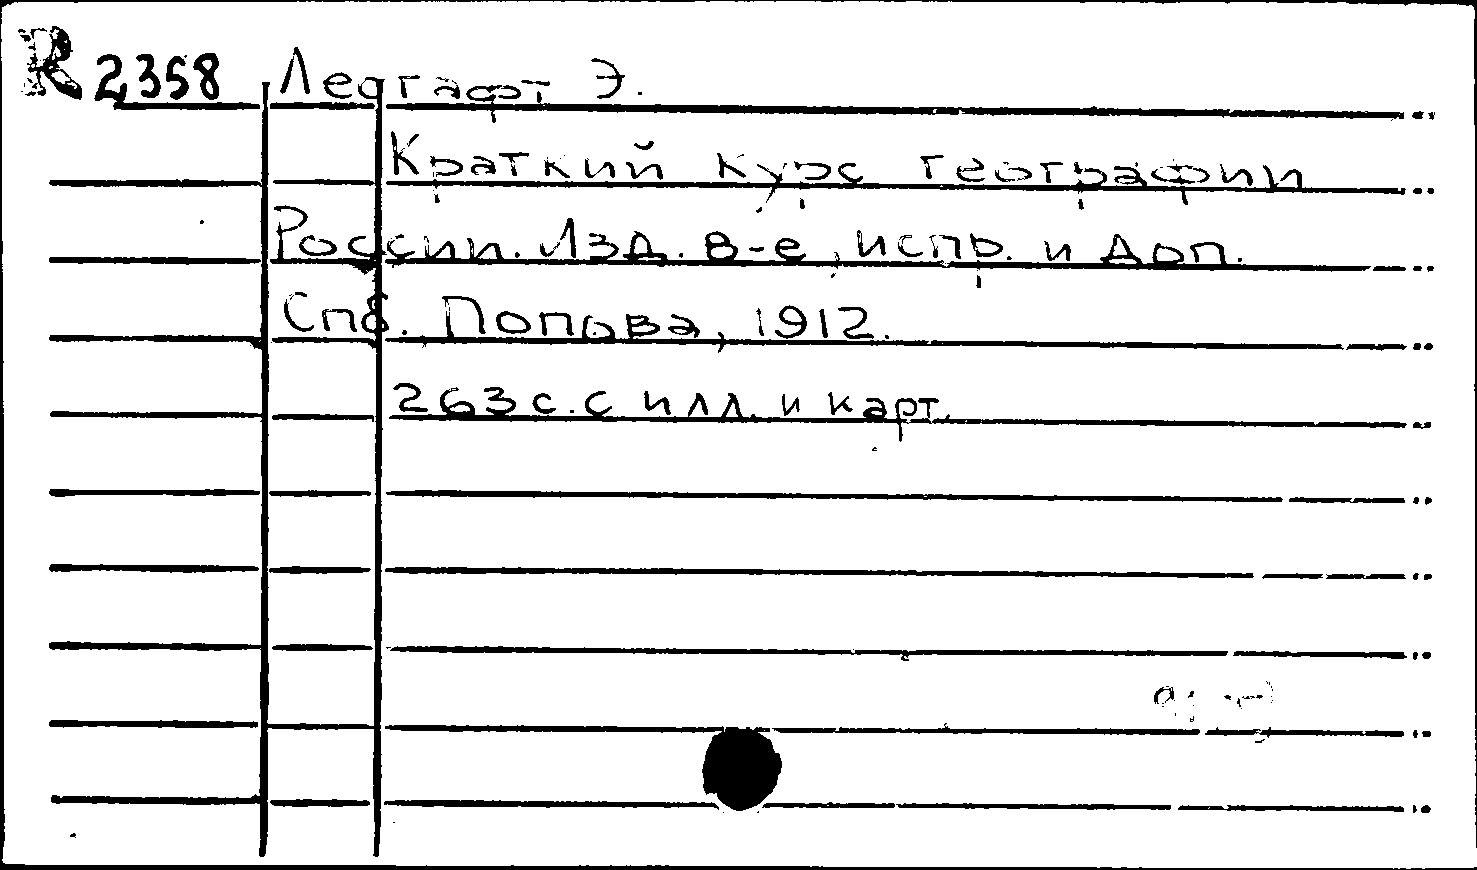 R 2358 Лесгафт Э.
Краткий курс географии
России. Изд. 8-е, испр. и доп.
Спб., Попова, 1912.
263 с. с илл. и карт.